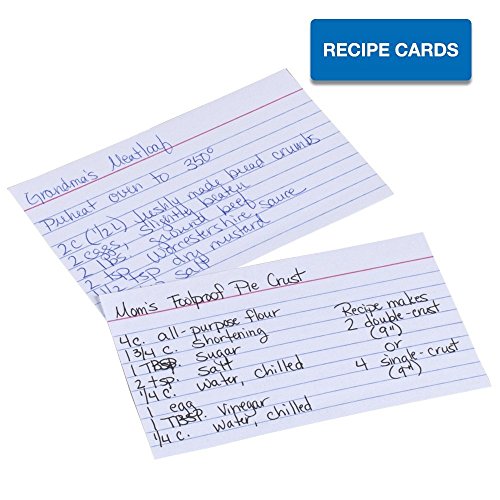 RECIPE CARDS
Grandma's Meatloaf
Preheat oven to 350°
2 c (1/2 L) freshly made bread crumbs
2 eggs, slightly beaten
2 lbs. ground beef
2 tsp Worcestershire sauce
1/2 tsp dry mustard
salt
Mom's Foolproof Pie Crust
4 c. all-purpose flour
1 3/4 c. Shortening
1 TBSP. Sugar
2 tsp. Salt
1/4 c. Water, chilled
1 egg
1 TBSP. Vinegar
1/4 c. Water, chilled
Recipe makes
2 double-crust
(9")
or
4 single-crust
(9")